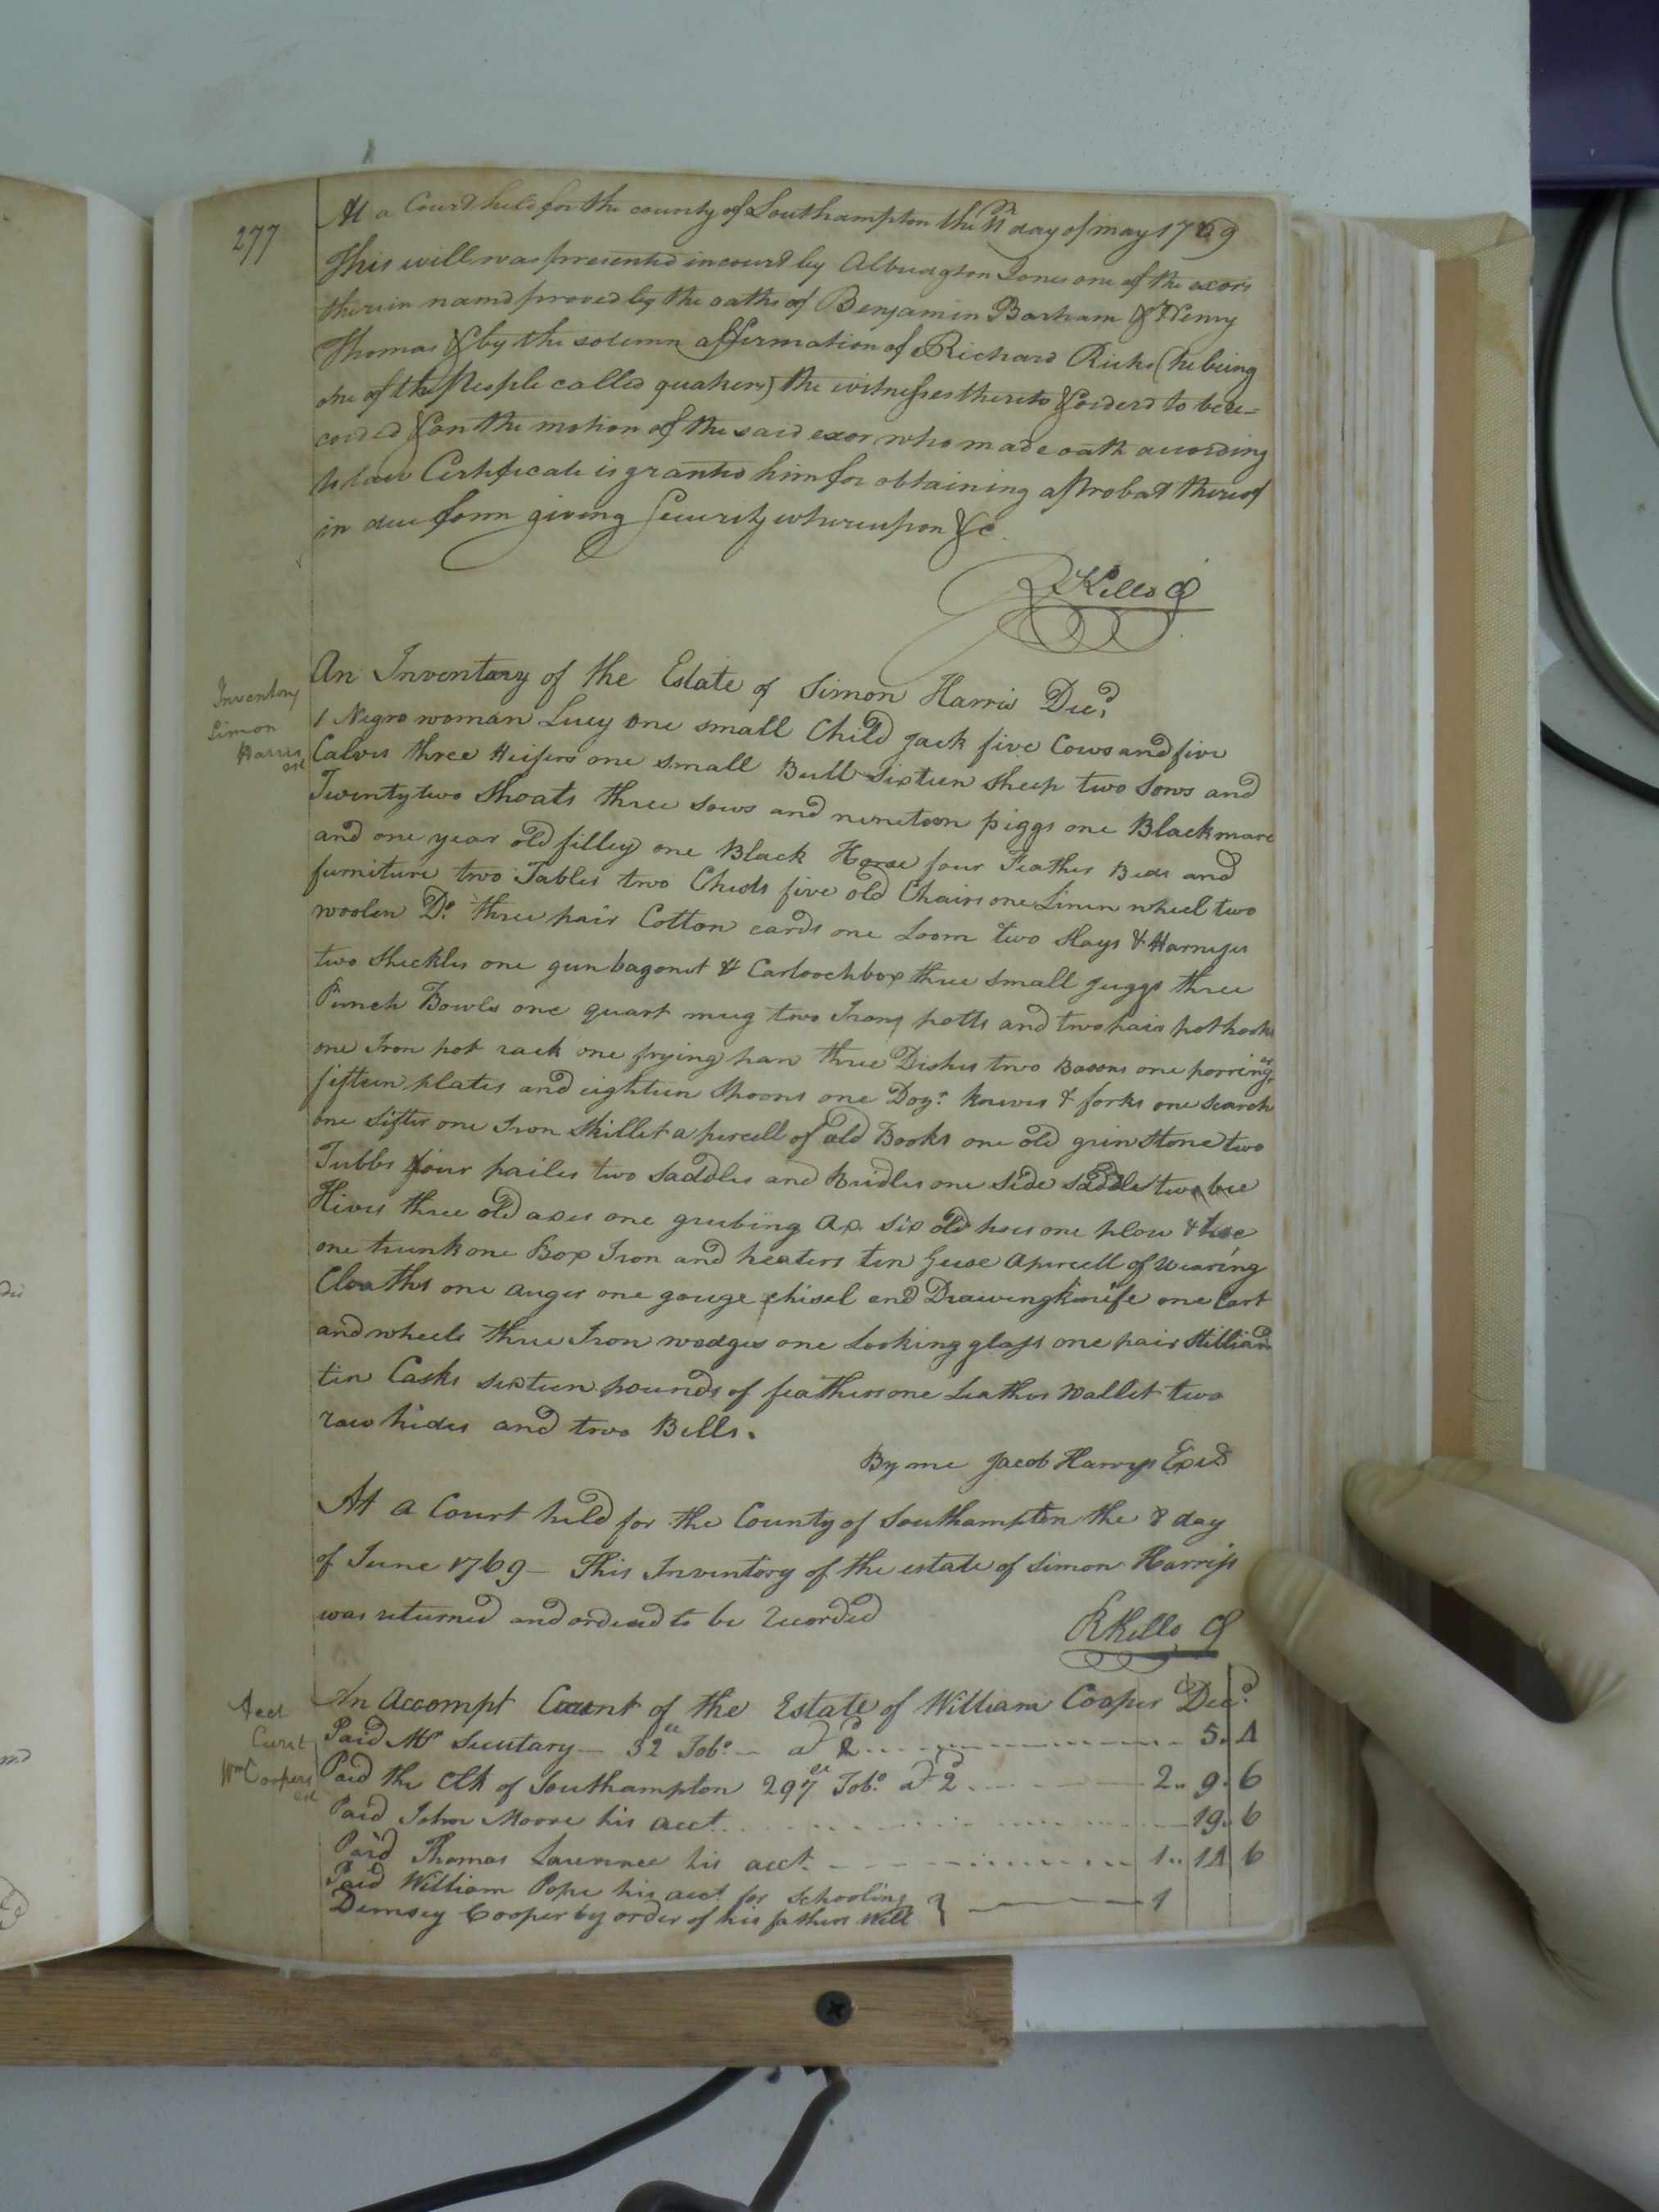 277
At a Court held for the county of Southampton the 11th day of may 1769
This will was presented in court by Albridgton Jones one of the exors
therein named proved by the oaths of Benjamin Barham & Henry
Thomas & by the solemn affirmation of Richard Ricks (he being
one of the People called quakers) the witnesses thereto & orderd to be re=
corded & on the motion of the said exor who made oath according
to law Certificate is granted him for obtaining a Probat thereof
in due form giving Security whereupon &c.
RKello C
Inventory
Simon
Harris
est
An Inventary of the Estate of Simon Harris Decd.
1 Negro woman Lucy one small Child Jack five Cows and five
Calves three Heifers one small Bull sixteen sheep two sows and
Twenty two Shoats three sows and nineteen piggs one Black mare
and one year old filley one Black Horse four Feather Beds and
furniture two Tables two Chests five old Chairs one Linen wheel two
woolen Do. three pair Cotton cards one Loom two Slays & Harnyss
two Sheckles one gun bagonet & Cartoochbox three small Juggs three
Punch Bowls one quart mug two Irons potts and two pair pot hooks
one Iron pot rack one frying pan three Dishes two Basons one porringer
fifteen plates and eighteen Spoons one Doz: knives & forks one search
one sifter one Iron Skillet a percell of old Books one old grin Stone two
Tubbs four pailes two saddles and Bridles one side saddle two bee
Hives three old axes one grubing Ax six old hoes one plow & hoe
one trunk one Box Iron and heaters ten Geese a percell of Wearing
Cloaths one auger one gouge chisel and Drawing knife one Cart
and wheels three Iron wedges one Looking glass one pair Stilliards
tin Casks sixteen pounds of feathers one Leather Wallet two
raw hides and two Bells.
By me Jacob Harryss Exed
At a Court held for the County of Southampton the 8 day
of June 1769 – This Inventory of the estate of Simon Harriss
was returned and orderd to be Recorded
RKello C
Acct
Curt
Wm Coopers
est
An Accompt Curant of the Estate of William Cooper Decd.
Paid Mr Secutary – 32 Tobo. – a 2 5. 4
Paid the Clk of Southampton 297 Tobo. a 2 2.. 9. 6
Paid John Moore his acct. 19. 6
Paid Thomas Lawrence his acct. 1.. 14 6
Paid William Pope his acct for Schooling
Demsey Cooper by order of his fathers Will } 1